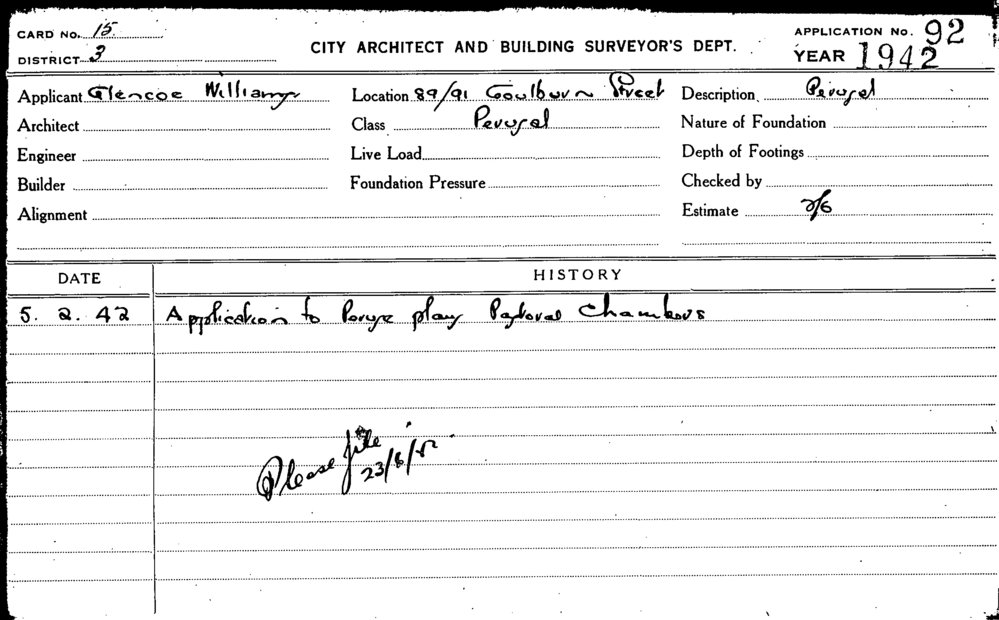 CARD No. 15
DISTRICT 3
CITY ARCHITECT AND BUILDING SURVEYOR'S DEPT.
APPLICATION No. 92
YEAR 1942
Applicant Glencoe Williams Location 89/91 Goulburn Street Description Perusal
Architect Class Perusal Nature of Foundation
Engineer Live Load Depth of Footings
Builder Foundation Pressure Checked by
Alignment Estimate 2/6
DATE HISTORY
5. 2. 42 Application to Peruse plans Pastoral Chambers
Please file
23/